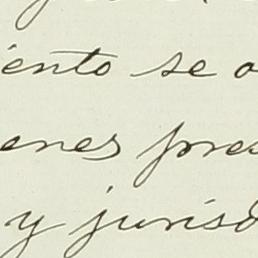 iento se o
enes pre
y juris